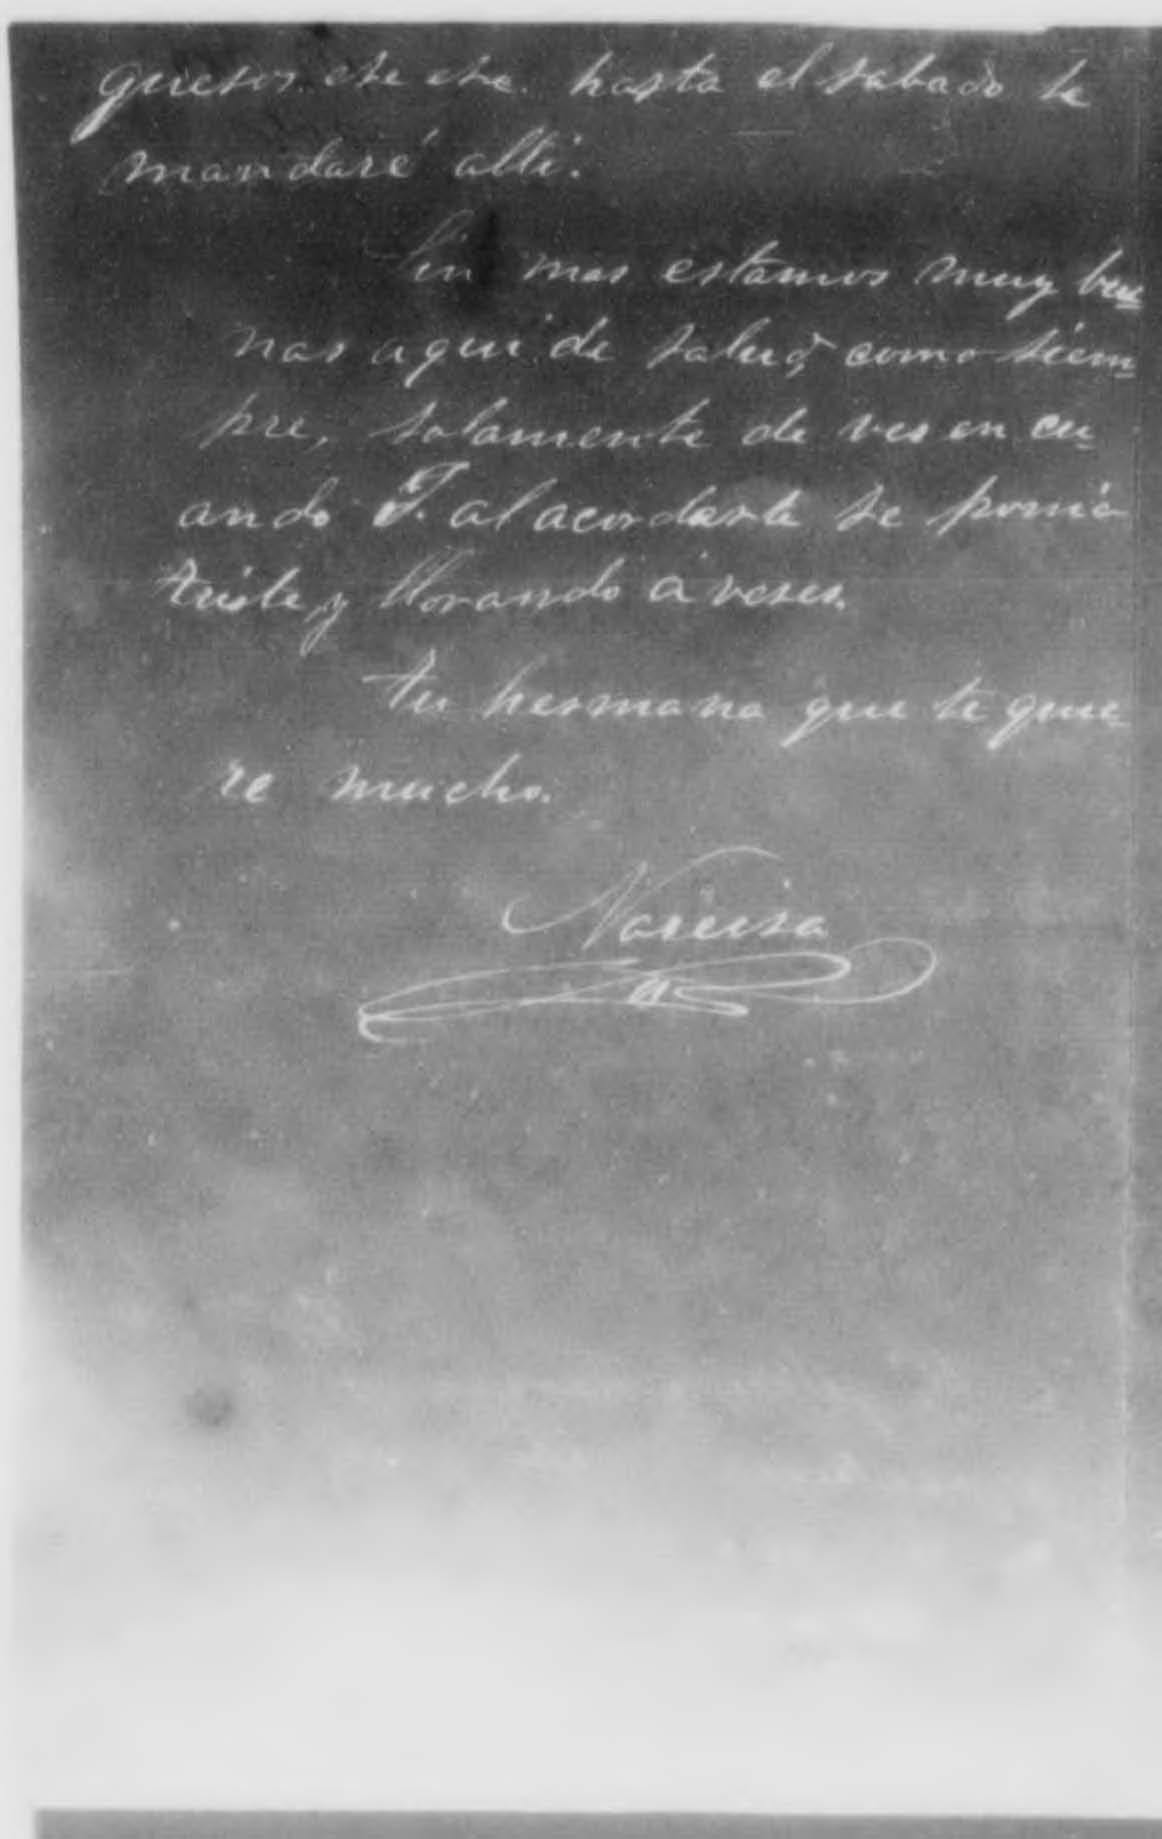 quesos. etc etc. hasta el sabado te
mandaré alli.
Sin mas estamos muy bue
nas aqui de salud, como siem
pre, solamente de ves en cu
ando T. al acordarte se ponia
triste, y llorando á veses.
Tu hermana que te quie
re mucho.
Narcisa